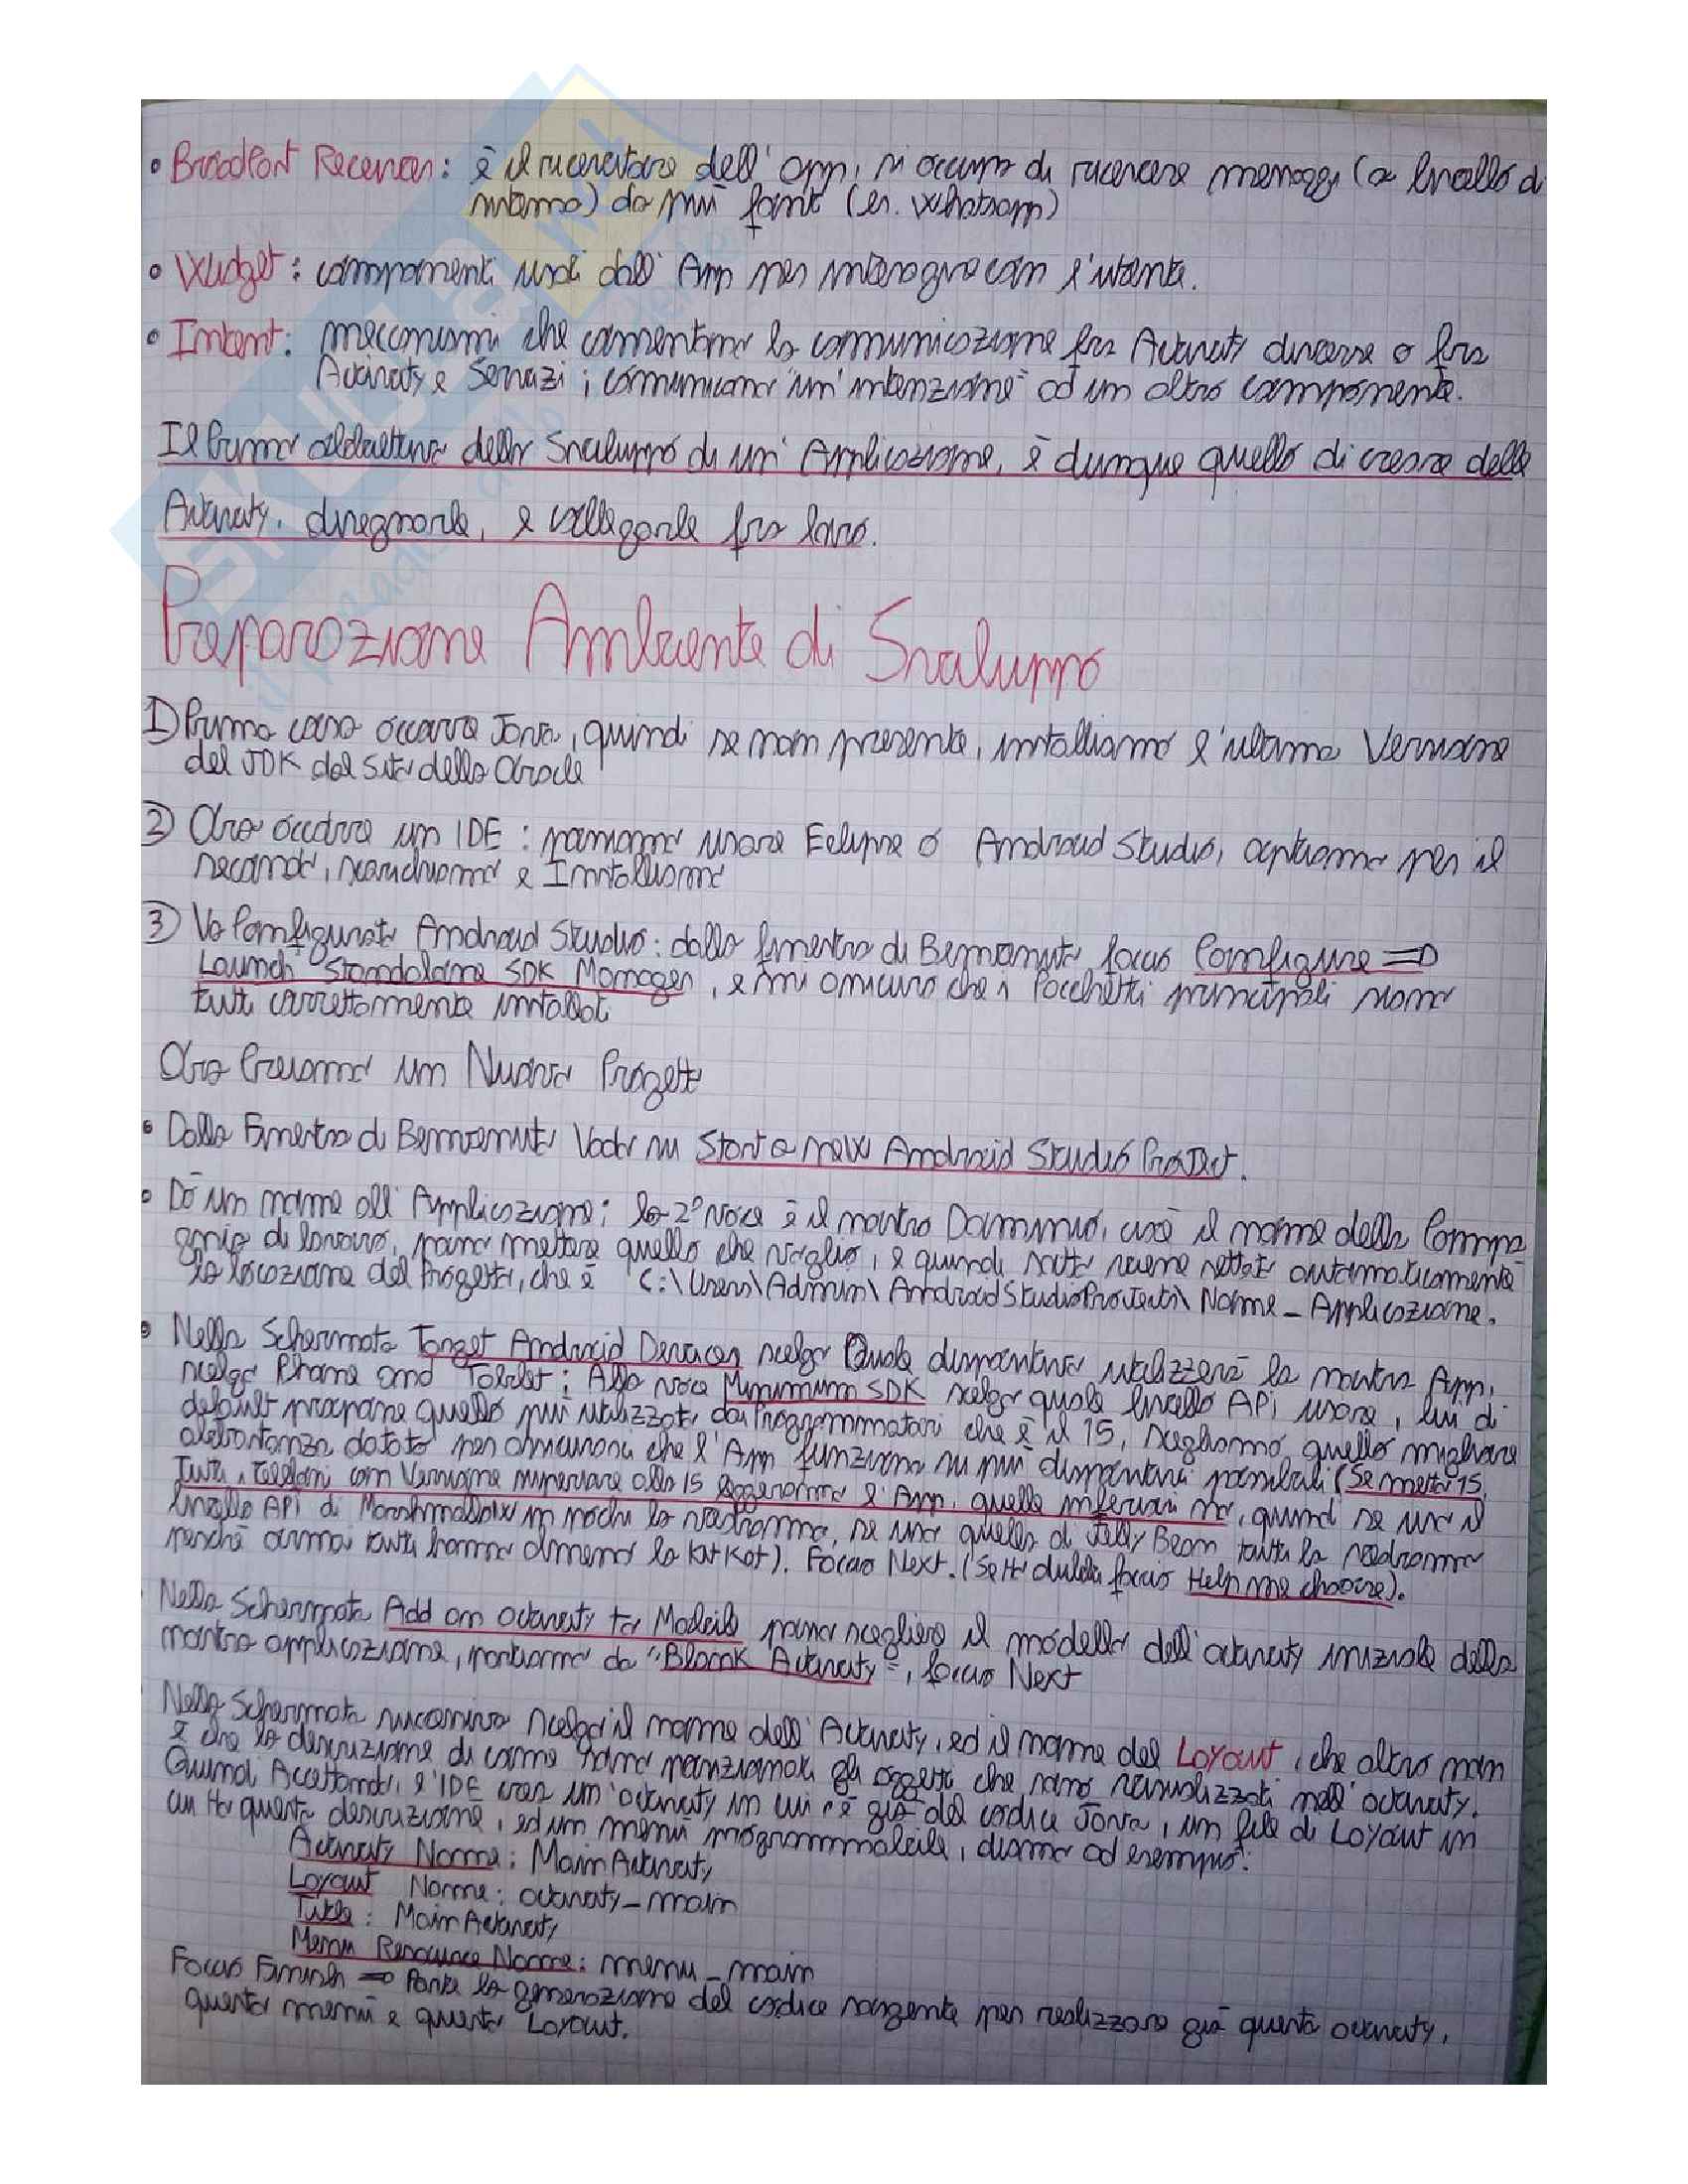 • Broadcast Receiver: è il ricevitore dell'App, si occupa di ricevere messaggi (a livello di
sistema) da più fonti (es. Whatsapp)
• Widget: componenti usati dall'App per interagire con l'utente.
• Intent: meccanismi che consentono la comunicazione fra Activity diverse o fra
Activity e Servizi; comunicano "un'intenzione" ad un altro componente.
Il primo obbiettivo dello Sviluppo di un'Applicazione, è dunque quello di creare delle
Activity, disegnarle, e collegarle fra loro.
Preparazione Ambiente di Sviluppo
1) Prima cosa occorre Java, quindi se non presente, installiamo l'ultima Versione
del JDK dal sito della Oracle
2) Ora occorre un IDE: possiamo usare Eclipse o Android Studio, optiamo per il
secondo, scarichiamo e Installiamo
3) Va Configurato Android Studio: dalla finestra di Benvenuto faccio Configure =>
Launch Standalone SDK Manager, e mi assicuro che i Pacchetti principali siano
tutti correttamente installati
Ora Creiamo un Nuovo Progetto
• Dalla Finestra di Benvenuto Vado su Start a new Android Studio Project.
• Do un nome all'Applicazione; la 2° voce è il nostro Dominio, cioè il nome della Compa
gnia di lavoro, posso mettere quello che voglio, e quindi sotto viene settato automaticamente
la locazione del Progetto, che è C:\Users\Admin\AndroidStudioProjects\Nome_Applicazione.
• Nella Schermata Target Android Devices scelgo Quale dispositivo utilizzerà la nostra App,
scelgo Phone and Tablet; Alla voce Minimum SDK scelgo quale livello API usare, lui di
default propone quello più utilizzato dai Programmatori che è il 15, scegliamo quello migliore
abbastanza datato per assicurarsi che l'App funziona su più dispositivi possibili (Se metto 15,
Tutti i telefoni con Versione superiore alla 15 leggeranno l'App, quelle inferiori no, quindi se uso il
livello API di Marshmallow in pochi la vedranno, se uso quello di Jelly Bean tutti la vedranno
perché ormai tutti hanno almeno la KitKat). Faccio Next. (Se Ho dubbi faccio Help me choose).
Nella Schermata Add an activity to Mobile posso scegliere il modello dell'activity iniziale della
nostra applicazione, partiamo da "Blank Activity", faccio Next
Nella Schermata successiva scelgo il nome dell'Activity, ed il nome del Layout, che altro non
è che la descrizione di come sono posizionati gli oggetti che sono visualizzati nell'activity.
Quindi Accettando, l'IDE crea un'activity in cui c'è già del codice Java, un file di Layout in
cui Ho questa descrizione, ed un menù programmabile, diamo ad esempio:
Activity Name: MainActivity
Layout Name: activity_main
Title: MainActivity
Menu Resource Name: menu_main
Faccio Finish => Parte la generazione del codice sorgente per realizzare già questa activity,
questo menù e questo Layout.